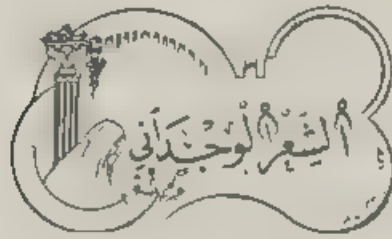 ألشِّعرُ ألْوِجْدَانِي